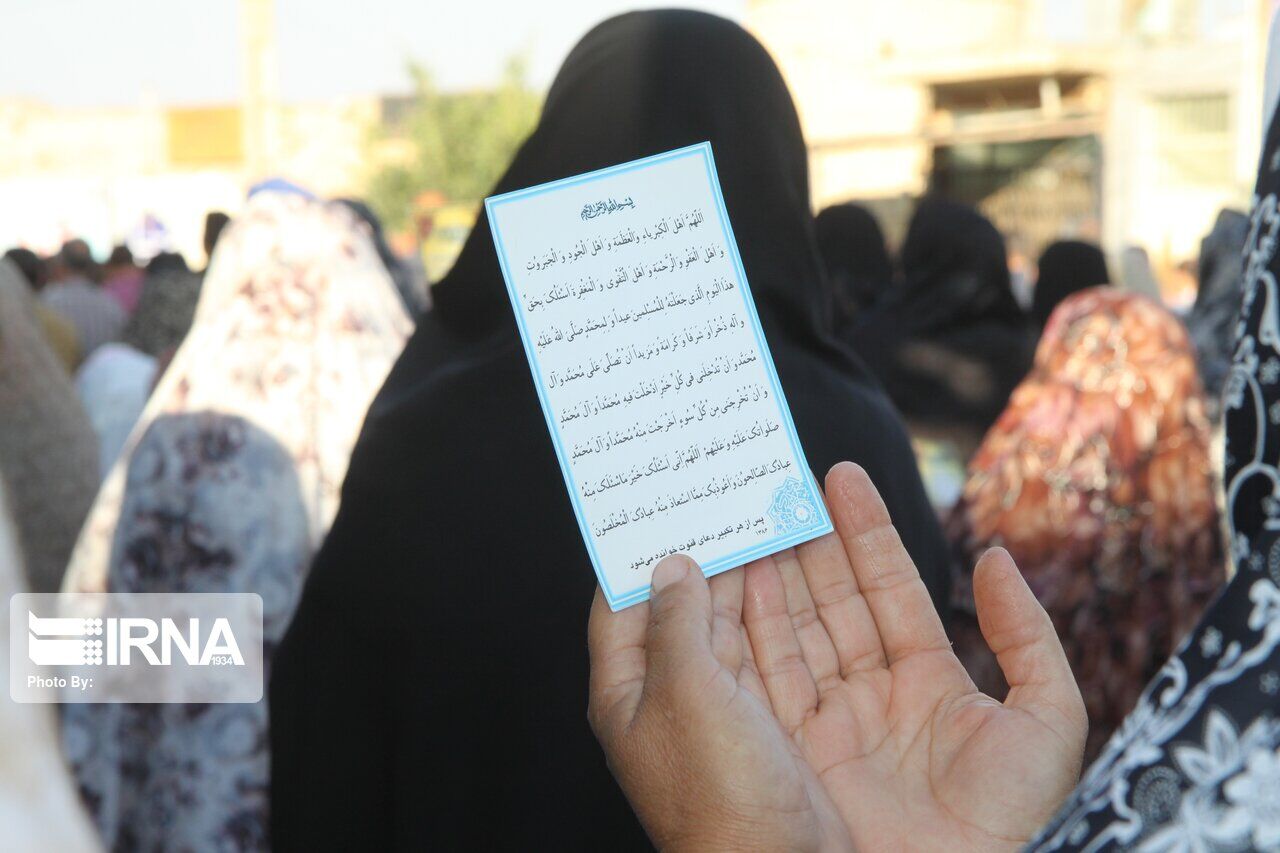 بسم الله الرحمن الرحیم
اَللّهُمَّ اَهْلَ الْکِبْرِیاءِ وَالْعَظَمَةِ وَ اَهْلَ الْجُودِ وَ الْجَبَرُوتِ
وَ اَهْلَ الْعَفْوِ وَ الرَّحْمَةِ وَ اَهْلَ التَّقْوی وَ الْمَغْفِرَةِ اَسْئَلُکَ بِحَقِّ
هذَا الْیَومِ الَّذی جَعَلْتَهُ لِلْمُسْلِمینَ عیداً وَ لِمُحَمَّدٍ صَلَّی اللهُ عَلَیْهِ
وَ آلِهِ ذُخْراً وَ شَرَفاً وَ کَرامَةً وَ مَزیداً اَنْ تُصَلِّیَ عَلی مُحَمَّدٍ وَ آلِ
مُحَمَّدٍ وَ اَنْ تُدْخِلَنی فی کُلِّ خَیْرٍ اَدْخَلْتَ فیهِ مُحَمَّداً وَ آلَ مُحَمَّدٍ
وَ اَنْ تُخْرِجَنی مِن کُلِّ سُوءٍ اَخْرَجْتَ مِنْهُ مُحَمَّداً وَ آلَ مُحَمَّدٍ
صَلَواتُکَ عَلَیْهِ وَ عَلَیْهِمْ اَللّهُمَّ اِنّی اَسْئَلُکَ خَیْرَ ماسَئَلَکَ مِنْهُ
عِبادُکَ الصّالِحُونَ وَ اَعُوذُبِکَ مِمَّا اسْتَعاذَ مِنْهُ عِبادُکَ الْمُخْلَصُونَ
پس از هر تکبیر دعای قنوت خوانده می‌شود
IRNA
1934
Photo By: